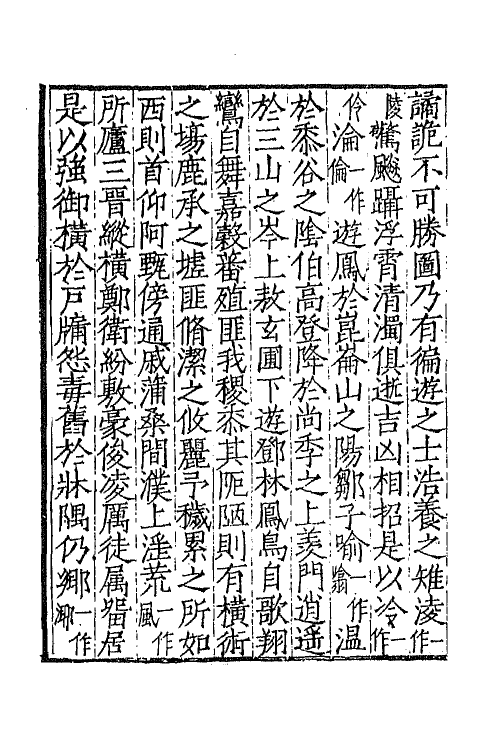 譎詭不可勝圖乃有徧遊之士浩養之雉凌一作
陵驚飈躡浮霄清濁俱逝吉凶相招是以冷一作
伶淪一作倫遊鳳於崑崙山之陽鄒子喻一作翕溫
於黍谷之陰伯高登降於尚季之上羨門逍遙
於三山之岑上敖玄圃下遊鄧林鳳鳥自歌翔
鸞自舞嘉穀蕃殖匪我稷黍其阨陋則有橫術
之場鹿承之墟匪脩潔之攸麗予穢累之所如
西則首仰阿甄傍通戚蒲桑間濮上淫荒一作風
所廬三晉縱橫鄭衛紛敷豪俊凌厲徒属畱居
是以強御橫於戶牖怨毒舊於牀隅仍鄉一作